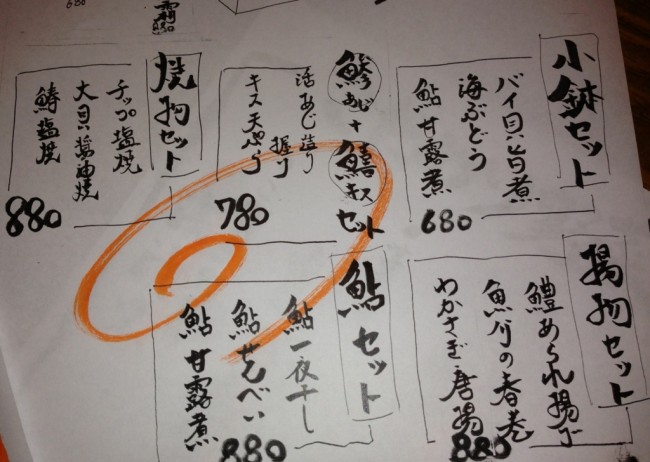 小鉢セット
バイ貝旨煮
海ぶどう
鮎甘露煮
680
鯵あじ+鱚キスセット
活あじ造り
握り
キス天ぷら
780
焼物セット
チップ塩焼
大貝醤油焼
鰆塩焼
880
揚物セット
鱧あられ揚げ
魚河の春巻
わかさぎ唐揚
880
鮎セット
鮎一夜干し
鮎せんべい
鮎甘露煮
880
680